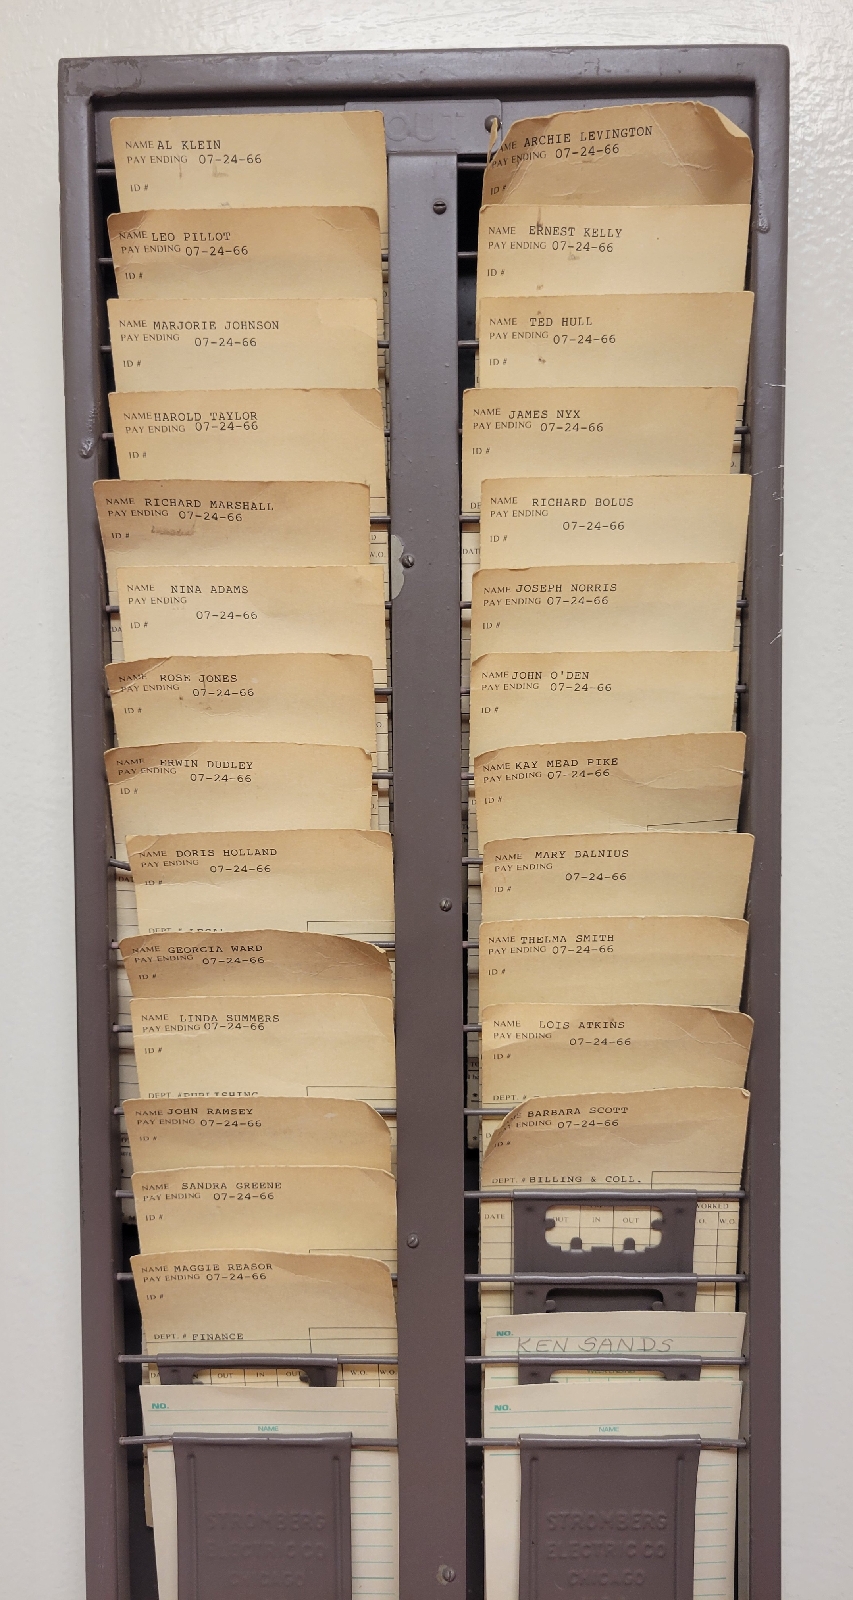 OUT
NAME AL KLEIN
PAY ENDING 07-24-66
ID #
NAME LEO PILLOT
PAY ENDING 07-24-66
ID #
NAME MARJORIE JOHNSON
PAY ENDING 07-24-66
ID #
NAME HAROLD TAYLOR
PAY ENDING 07-24-66
ID #
NAME RICHARD MARSHALL
PAY ENDING 07-24-66
ID #
W.O.
NAME NINA ADAMS
PAY ENDING 07-24-66
ID #
NAME ROSE JONES
PAY ENDING 07-24-66
ID #
NAME ERWIN DUDLEY
PAY ENDING 07-24-66
ID #
NAME DORIS HOLLAND
PAY ENDING 07-24-66
ID #
DEPT. # LEGAL
NAME GEORGIA WARD
PAY ENDING 07-24-66
ID #
NAME LINDA SUMMERS
PAY ENDING 07-24-66
ID #
DEPT. # PUBLISHING
NAME JOHN RAMSEY
PAY ENDING 07-24-66
ID #
NAME SANDRA GREENE
PAY ENDING 07-24-66
ID #
NAME MAGGIE REASOR
PAY ENDING 07-24-66
ID #
DEPT. # FINANCE
OUT IN OUT W.O. W.O.
NO.
NAME
STROMBERG
ELECTRIC CO
CHICAGO
NAME ARCHIE LEVINGTON
PAY ENDING 07-24-66
ID #
NAME ERNEST KELLY
PAY ENDING 07-24-66
ID #
NAME TED HULL
PAY ENDING 07-24-66
ID #
NAME JAMES NYX
PAY ENDING 07-24-66
ID #
NAME RICHARD BOLUS
PAY ENDING 07-24-66
ID #
NAME JOSEPH NORRIS
PAY ENDING 07-24-66
ID #
NAME JOHN O'DEN
PAY ENDING 07-24-66
ID #
NAME KAY MEAD PIKE
PAY ENDING 07-24-66
ID #
NAME MARY BALNIUS
PAY ENDING 07-24-66
ID #
NAME THELMA SMITH
PAY ENDING 07-24-66
ID #
NAME LOIS ATKINS
PAY ENDING 07-24-66
ID #
DEPT. #
BARBARA SCOTT
ENDING 07-24-66
ID #
DEPT. # BILLING & COLL.
WORKED
DATE OUT IN OUT W.O.
NO.
KEN SANDS
NO.
NAME
STROMBERG
ELECTRIC CO
CHICAGO